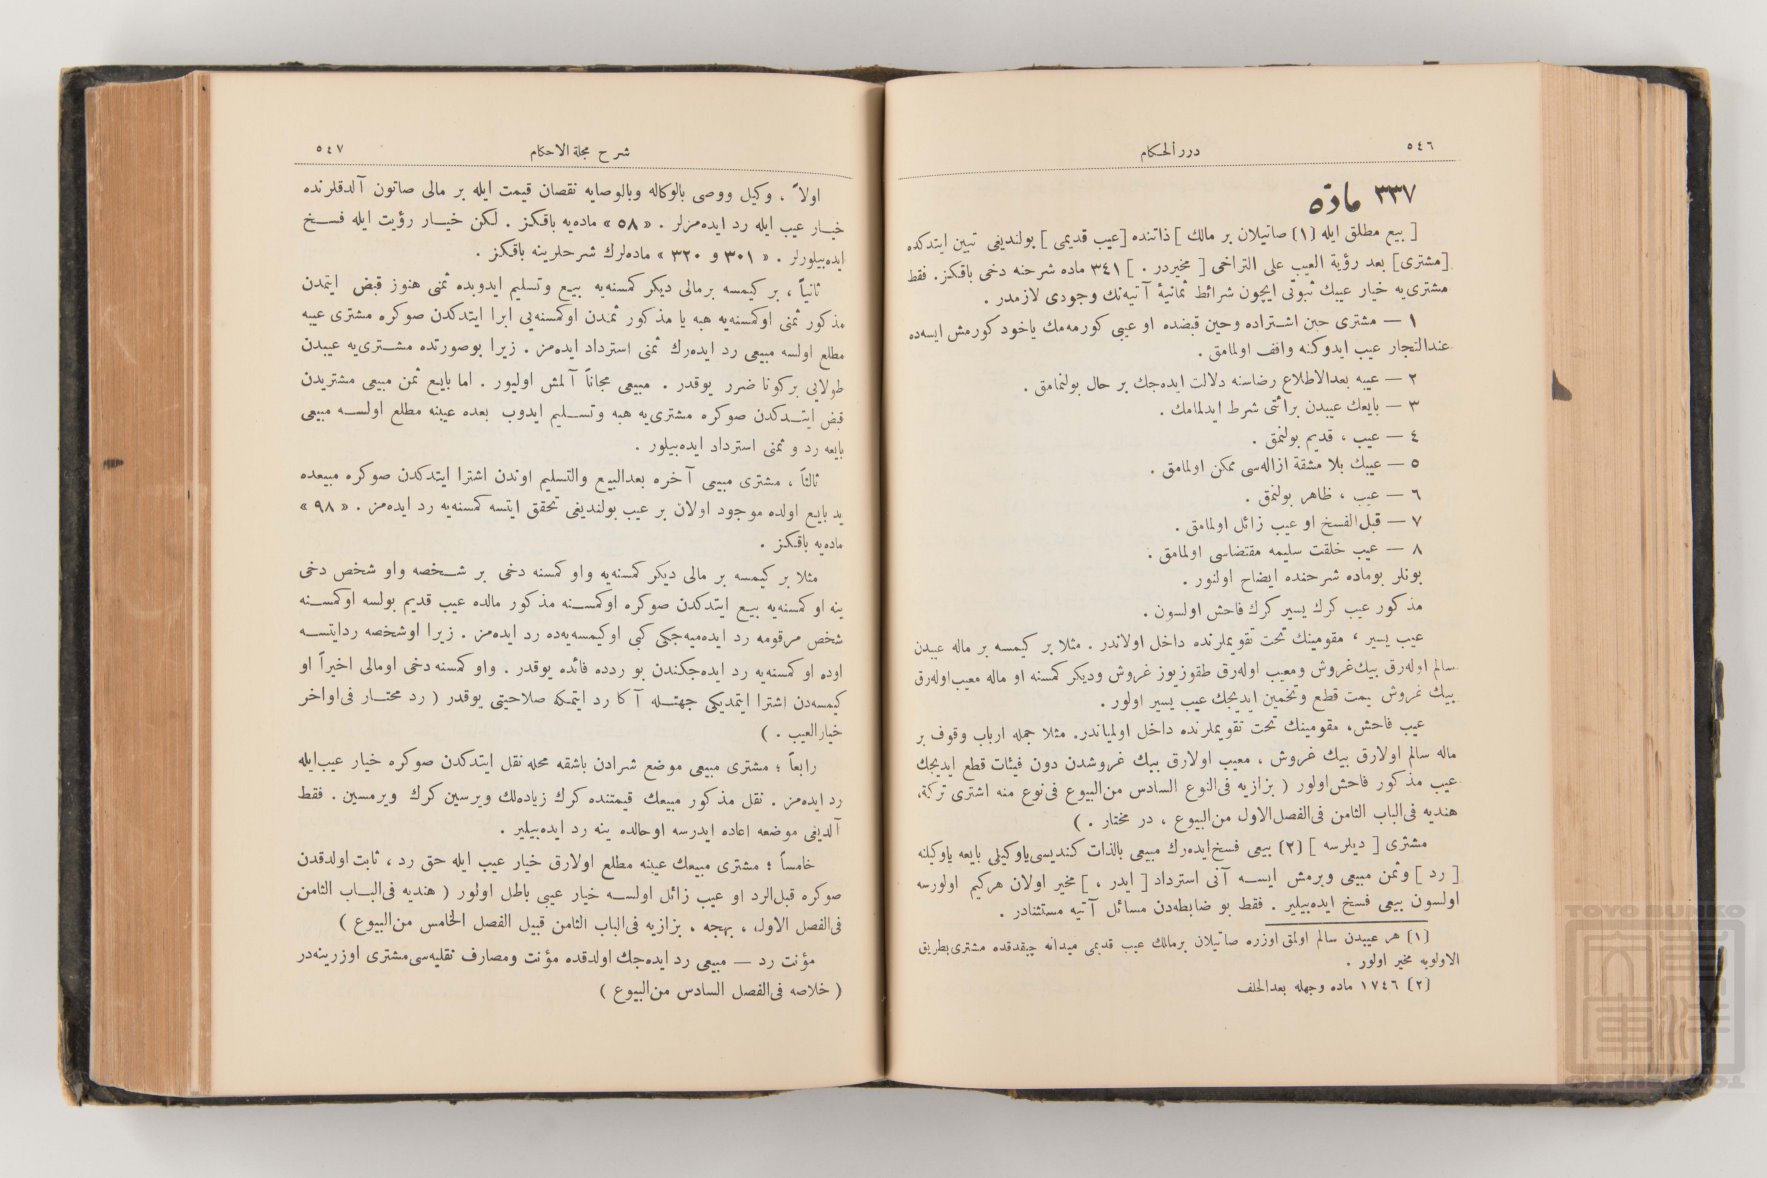 ٥٤٦
درر الحكام
٣٣٧ مادّه
[ بيع مطلق ايله (١) صاتيلان بر مالك ] ذاتنده [عيب قديمى ] بولنديغى تبين ايتدكده
[مشترى] بعد رؤية العيب على التراخى [ مخيردر . ] ٣٤١ ماده شرحنه دخى باقكز. فقط
مشترى‌يه خيار عيبك ثبوتى ايچون شرائط ثمانيۀ آتيه‌نك وجودى لازمدر .
١ — مشترى حين اشتراده وحين قبضده او عيبى كورمه‌مك ياخود كورمش ايسه‌ده
عندالتجار عيب ايدوكنه واقف اولمامق .
٢ — عيبه بعدالاطلاع رضاسنه دلالت ايده‌جك بر حال بولنمامق .
٣ — بايعك عيبدن برائتى شرط ايدلمامك .
٤ — عيب ، قديم بولنمق .
٥ — عيبك بلا مشقة ازاله‌سى ممكن اولمامق .
٦ — عيب ، ظاهر بولنمق .
٧ — قبل‌الفسخ او عيب زائل اولمامق .
٨ — عيب خلقت سليمه مقتضاسى اولمامق .
بونلر بوماده شرحنده ايضاح اولنور .
مذكور عيب كرك يسير كرك فاحش اولسون .
عيب يسير ، مقومينك تحت تقويملرنده داخل اولاندر . مثلا بر كيمسه بر ماله عيبدن
سالم اوله‌رق بيك‌غروش ومعيب اوله‌رق طقوزيوز غروش وديكر كمسنه او ماله معيب‌اوله‌رق
بيك غروش يمت قطع وتخمين ايديجك عيب يسير اولور .
عيب فاحش، مقومينك تحت تقويملرنده داخل اولمياندر. مثلا جمله ارباب وقوف بر
ماله سالم اولارق بيك غروش ، معيب اولارق بيك غروشدن دون فيئات قطع ايديجك
عيب مذكور فاحش‌اولور ( بزازيه فى‌النوع السادس من‌البيوع فى‌نوع منه اشترى تركة،
هنديه فى‌الباب الثامن فى‌الفصل‌الاول من‌البيوع ، در مختار . )
مشترى [ ديلرسه ] (٢) بيعى فسخ‌ايده‌رك مبيعى بالذات كنديسى‌ياوكيلى بايعه ياوكيلنه
[ رد ] وثمن مبيعى ويرمش ايسه آنى استرداد [ ايدر ، ] مخير اولان هركيم اولورسه
اولسون بيعى فسخ ايده‌بيلير . فقط بو ضابطه‌دن مسائل آتيه مستثنادر .
(١) هر عيبدن سالم اولمق اوزره صاتيلان برمالك عيب قديمى ميدانه چيقدقده مشترى‌بطريق
الاولويه مخير اولور .
(٢) ١٧٤٦ ماده وجهله بعدالحلف
شرح مجلة الاحكام
٥٤٧
اولاً ، وكيل ووصى بالوكاله وبالوصايه نقصان قيمت ايله بر مالى صاتون آلدقلرنده
خيار عيب ايله رد ايده‌مزلر . « ٥٨ » ماده‌يه باقكز . لكن خيار رؤيت ايله فسخ
ايده‌بيلورلر . « ٣٠١ و ٣٢٠ » ماده‌لرك شرحلرينه باقكز .
ثانياً ، بر كيمسه برمالى ديكر كمسنه‌يه بيع وتسليم ايدوبده ثمنى هنوز قبض ايتمدن
مذكور ثمنى اوكمسنه‌يه هبه يا مذكور ثمندن اوكمسنه‌يى ابرا ايتدكدن صوكره مشترى عيبه
مطلع اولسه مبيعى رد ايده‌رك ثمنى استرداد ايده‌مز . زيرا بوصورتده مشترى‌يه عيبدن
طولايى بركونا ضرر يوقدر . مبيعى مجاناً آلمش اوليور . اما بايع ثمن مبيعى مشتريدن
قبض ايتدكدن صوكره مشترى‌يه هبه وتسليم ايدوب بعده عيبنه مطلع اولسه مبيعى
بايعه رد و ثمنى استرداد ايده‌بيلور .
ثالثاً ، مشترى مبيعى آخره بعدالبيع والتسليم اوندن اشترا ايتدكدن صوكره مبيعده
يد بايع اولده موجود اولان بر عيب بولنديغى تحقق ايتسه كمسنه‌يه رد ايده‌مز . « ٩٨ »
ماده‌يه باقكز .
مثلا بر كيمسه بر مالى ديكر كمسنه‌يه واو كمسنه دخى بر شخصه واو شخص دخى
ينه او كمسنه‌يه بيع ايتدكدن صوكره اوكمسنه مذكور مالده عيب قديم بولسه اوكمسنه
شخص مرقومه رد ايده‌ميه‌جكى كبى اوكيمسه‌يه‌ده رد ايده‌مز . زيرا اوشخصه ردايتسه
اوده او كمسنه‌يه رد ايده‌جكندن بو ردده فائده يوقدر . واو كمسنه دخى اومالى اخيراً او
كيمسه‌دن اشترا ايتمديكى جهتله آكا رد ايتمكه صلاحيتى يوقدر ( رد محتار فى‌اواخر
خيارالعيب . )
رابعاً ؛ مشترى مبيعى موضع شرادن باشقه محله نقل ايتدكدن صوكره خيار عيب‌ايله
رد ايده‌مز . نقل مذكور مبيعك قيمتنده كرك زياده‌لك ويرسين كرك ويرمسين . فقط
آلديغى موضعه اعاده ايدرسه اوحالده ينه رد ايده‌بيلير .
خامساً ؛ مشترى مبيعك عيبنه مطلع اولارق خيار عيب ايله حق رد ، ثابت اولدقدن
صوكره قبل‌الرد او عيب زائل اولسه خيار عيبى باطل اولور ( هنديه فى‌الباب الثامن
فى‌الفصل الاول ، بهجه ، بزازيه فى‌الباب الثامن قبيل الفصل الخامس من‌البيوع )
مؤنت رد — مبيعى رد ايده‌جك اولدقده مؤنت ومصارف نقليه‌سى‌مشترى اوزرينه‌در
( خلاصه فى‌الفصل السادس من‌البيوع )
TOYO BUNKO